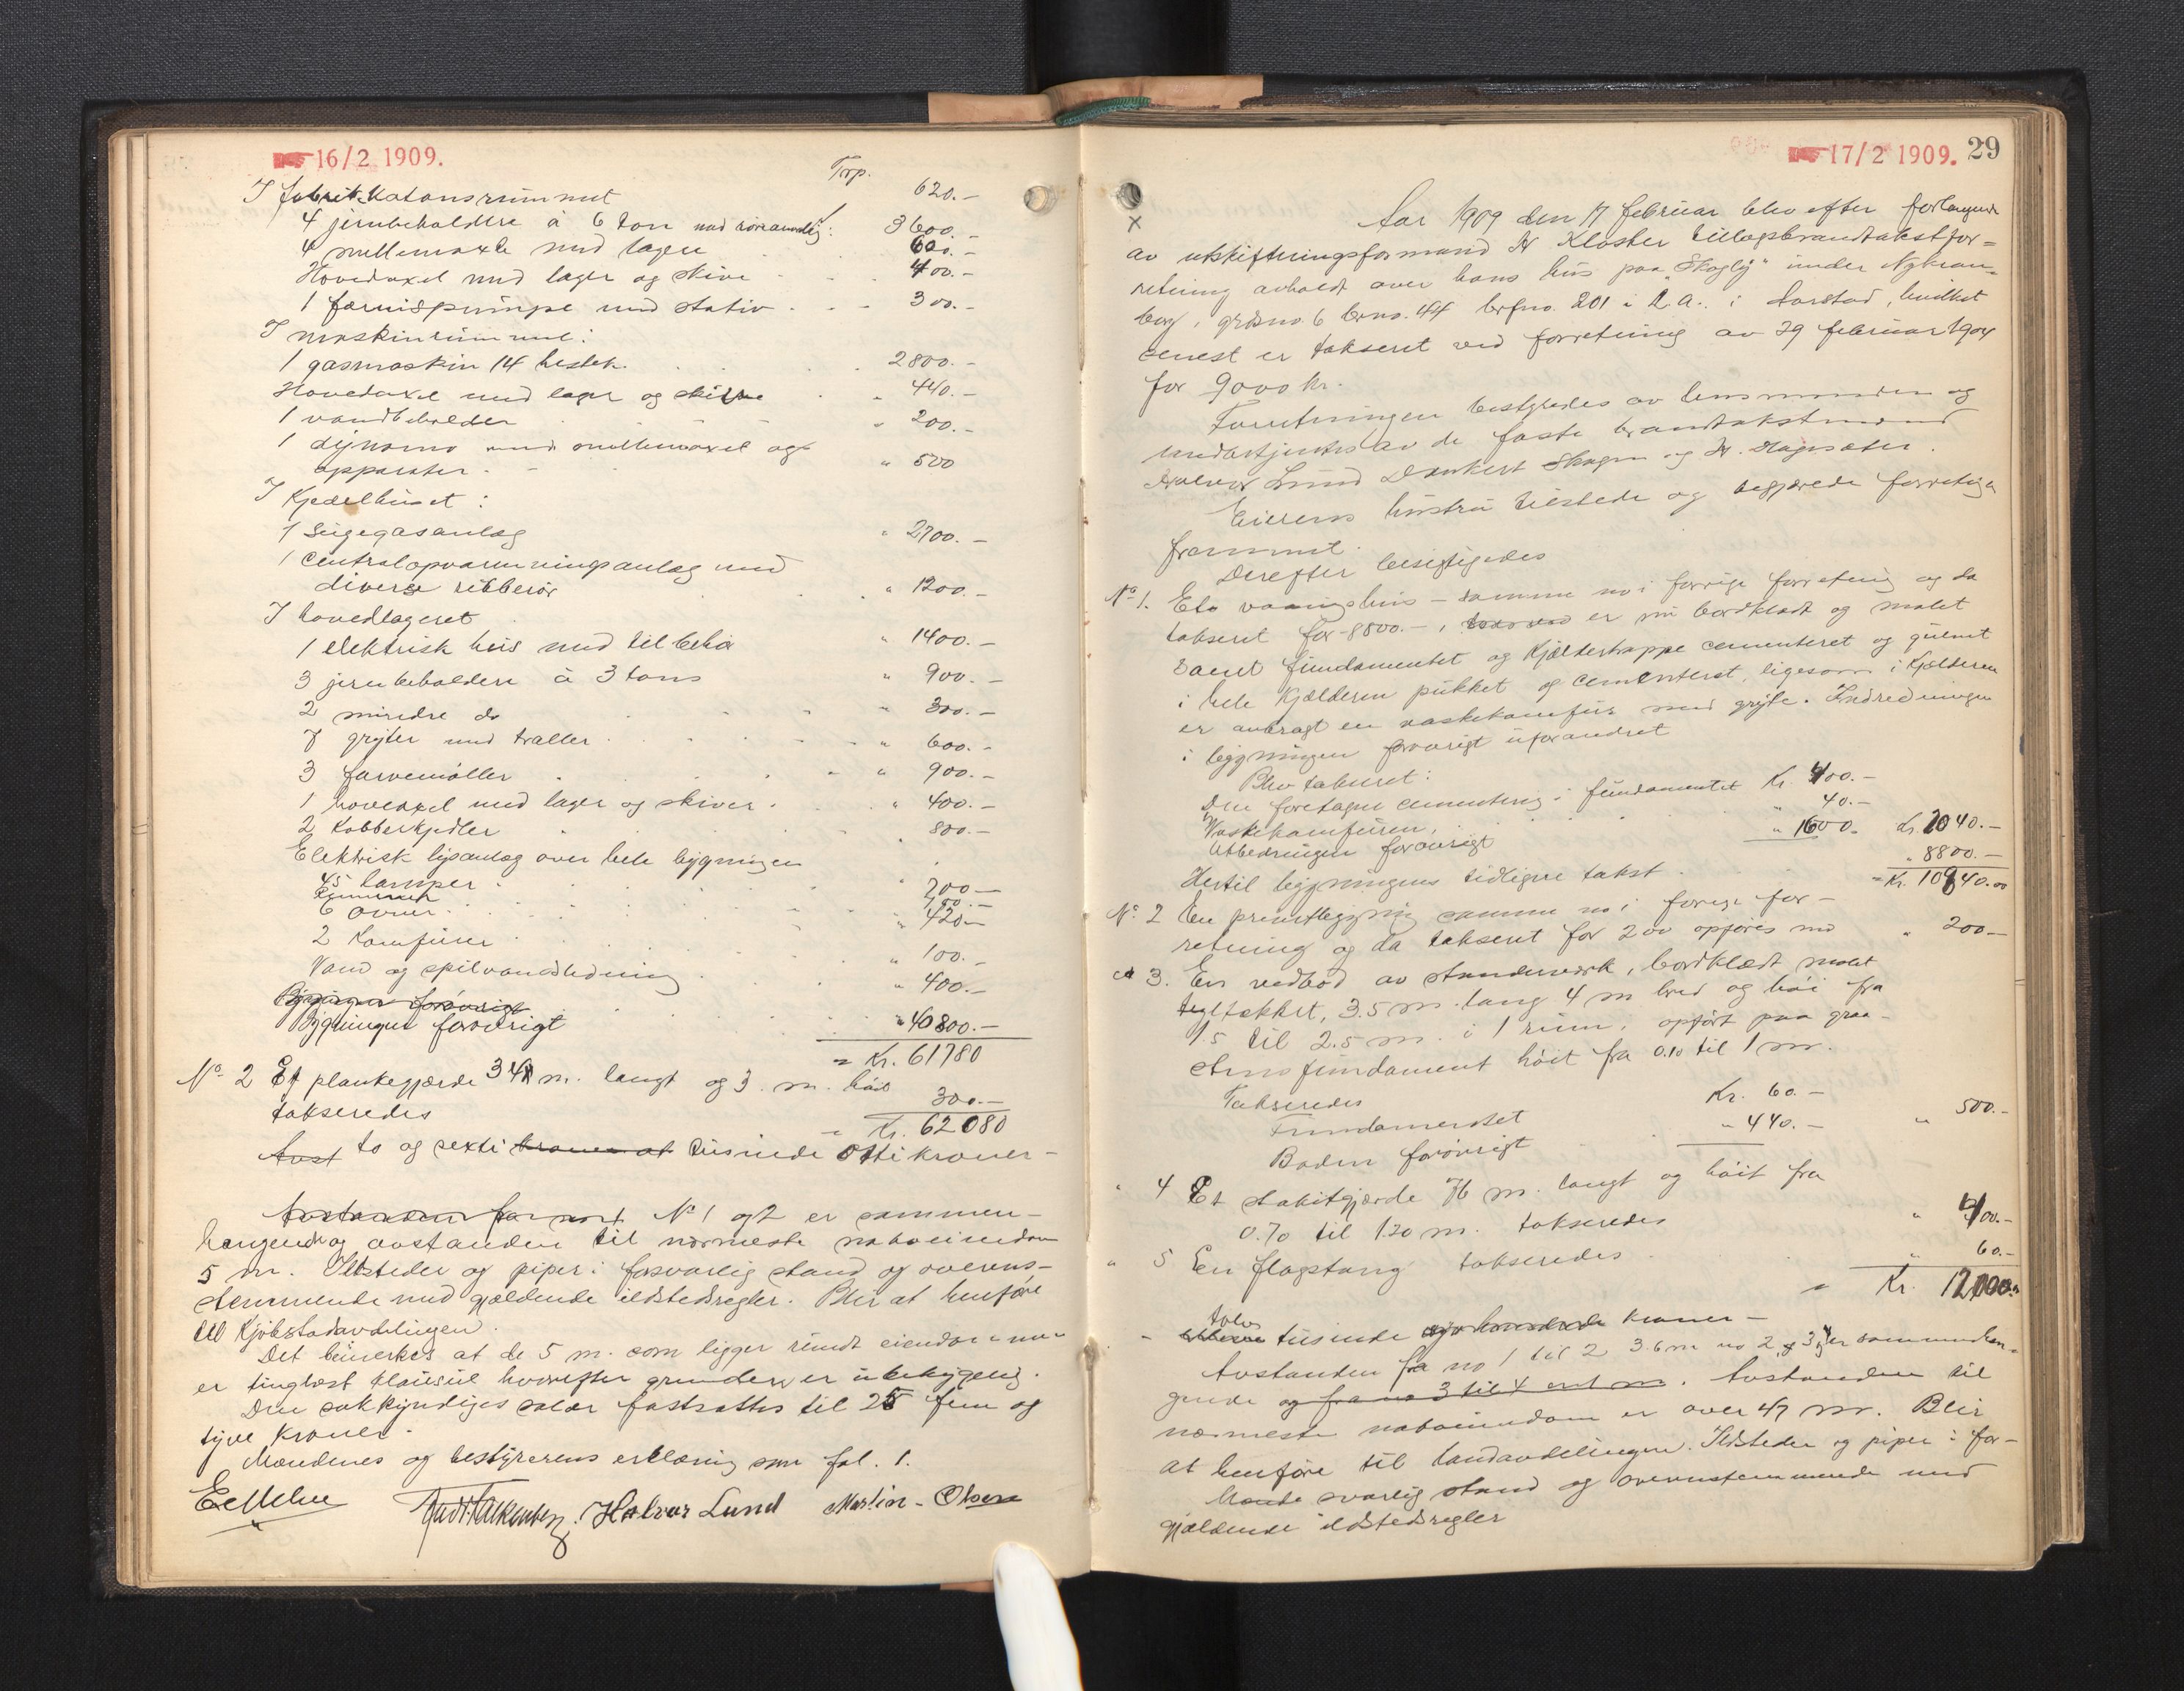 16/2 1909.
Trp. 620.-
I fabrikationsrummet
4 jernbeholdere à 6 ton med 3600.-
4 mellemaxle med lagere 600.-
Hovedaxel med lager og skive 400.-
1 fernispumpe med stativ 300.-
I maskinrummet:
1 gasmaskin 14 hestek. 2800.-
Hovedaxel med lager og skiver " 440.-
1 vandbeholder " 200.-
1 dynamo med mellemaxel og
apparater - " 500
I Kjedelhuset:
1 Sugegasanlæg " 2700.-
1 Centralopvarmningsanlæg med
diverse ribberør " 1200.-
I hovedlageret
1 elektrisk heis med tilbehør " 1400.-
3 jernbeholdere à 3 tons " 900.-
2 mindre do " 300.-
7 gryter med traller " 600.-
3 farvemøller " 900.-
1 hovedaxel med lager og skiver " 400.-
2 Kobberkjedler " 800.-
Elektrisk lysanlæg over hele bygningen
45 lamper 700.-
6 ovner " 420.-
2 Komfurer " 100.-
Vand og spilvandsledning " 400.-
Bygningen forøvrigt
Bygningen forøvrigt " 40800.-
= Kr. 61780
No 2 Et plankegjærde 348 m. langt og 3 m. høit
takseredes 300.-
= Kr. 62080
to og sexti kroner at tusinde otti kroner -
Avstanden No 1 og 2 er sammen-
hængende og avstanden til nærmeste naboeiendom
5 m. Ildsteder og piper i forsvarlig stand og overens-
stemmende med gjældende ildstedsregler. Blir at henføre
til Kjøbstadavdelingen.
Det bemerkes at de 5 m. som ligger rundt eiendommen
er tinglæst klausul hvorefter grunden er ubebyggelig.
Den sakkyndiges salær fastsattes til 25 fem og
tyve kroner.
Mændenes og bestyrerens erklæring som fol. 1.
Halvor Lund Martin Olsen
17/2 1909. 29
Aar 1909 den 17 februar blev efter forlangende
av utskiftningsformand A Kloster tillægsbrandtakstfor=
retning avholdt over hans hus paa "Skogly" under Nykron-
borg, grdsno. 6 brno. 44 brfno. 201 i L.A. i Aarstad, hvilket
senest er takseret ved forretning av 29 februar 1904
for 9000 kr.
Forretningen bestyredes av lensmanden og
medbetjentes av de faste brandtakstmænd
Halvor Lund Dankert Skagen og A. Hagesæter.
Eierens hustru tilstede og begjærede forretningen
fremmet.
Derefter besigtigedes
No 1. Et vaaningshus - samme no i forrige forretning og da
takseret for 8800.-, er nu bordklædt og malet
samt fundamentet og kjældertrappe cementeret og gulvet
i hele kjælderen pukket og cementeret, ligesom i kjælderen
er anbragt en vaskekomfur med gryte. Indredningen
i bygningen forøvrigt uforandret
Blev takseret:
Den foretagne cementering i fundamentet Kr. 400.-
Vaskekomfuren " 40.-
Utbedringen forøvrigt " 1600.- Kr. 2040.-
Hertil bygningens tidligere takst " 8800.-
= Kr. 10840.00
No 2 En privetbygning samme no i forrige for-
retning og da takseret for 200 opføres med " 200.-
" 3. En vedbod av stenderverk, bordklædt malet
tegltækket, 3.5 m. lang 4 m bred og høi fra
1.5 til 2.5 m. i 1 rum, opført paa graa-
stens fundament høit fra 0.10 til 1 m.
Takseredes
Fundamentet Kr. 60.-
Boden forøvrigt " 440.- " 500.-
" 4 Et stakitgjærde 76 m. langt og høit fra
0.70 til 1.20 m. takseredes " 400.-
" 5 En flagstang takseredes " 60.-
= Kr. 12000.-
- tolv tusinde kroner -
Avstanden fra no 1 til 2 3.6 m no 2 og 3 er sammenhæn-
gende og fra no 3 til 4 . Avstanden til
nærmeste naboeiendom er over 47 m. Blir
at henføre til landavdelingen. Ildsteder og piper i for-
svarlig stand og overensstemmende med
gjældende ildstedsregler